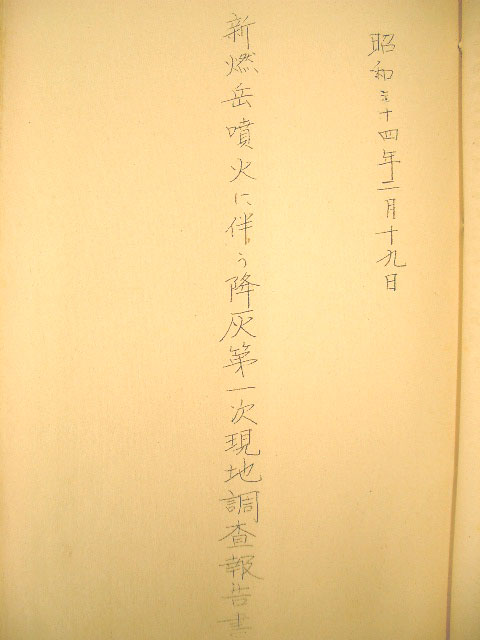 昭和三十四年二月十九日
新燃岳噴火に伴う降灰第一次現地調査報告書